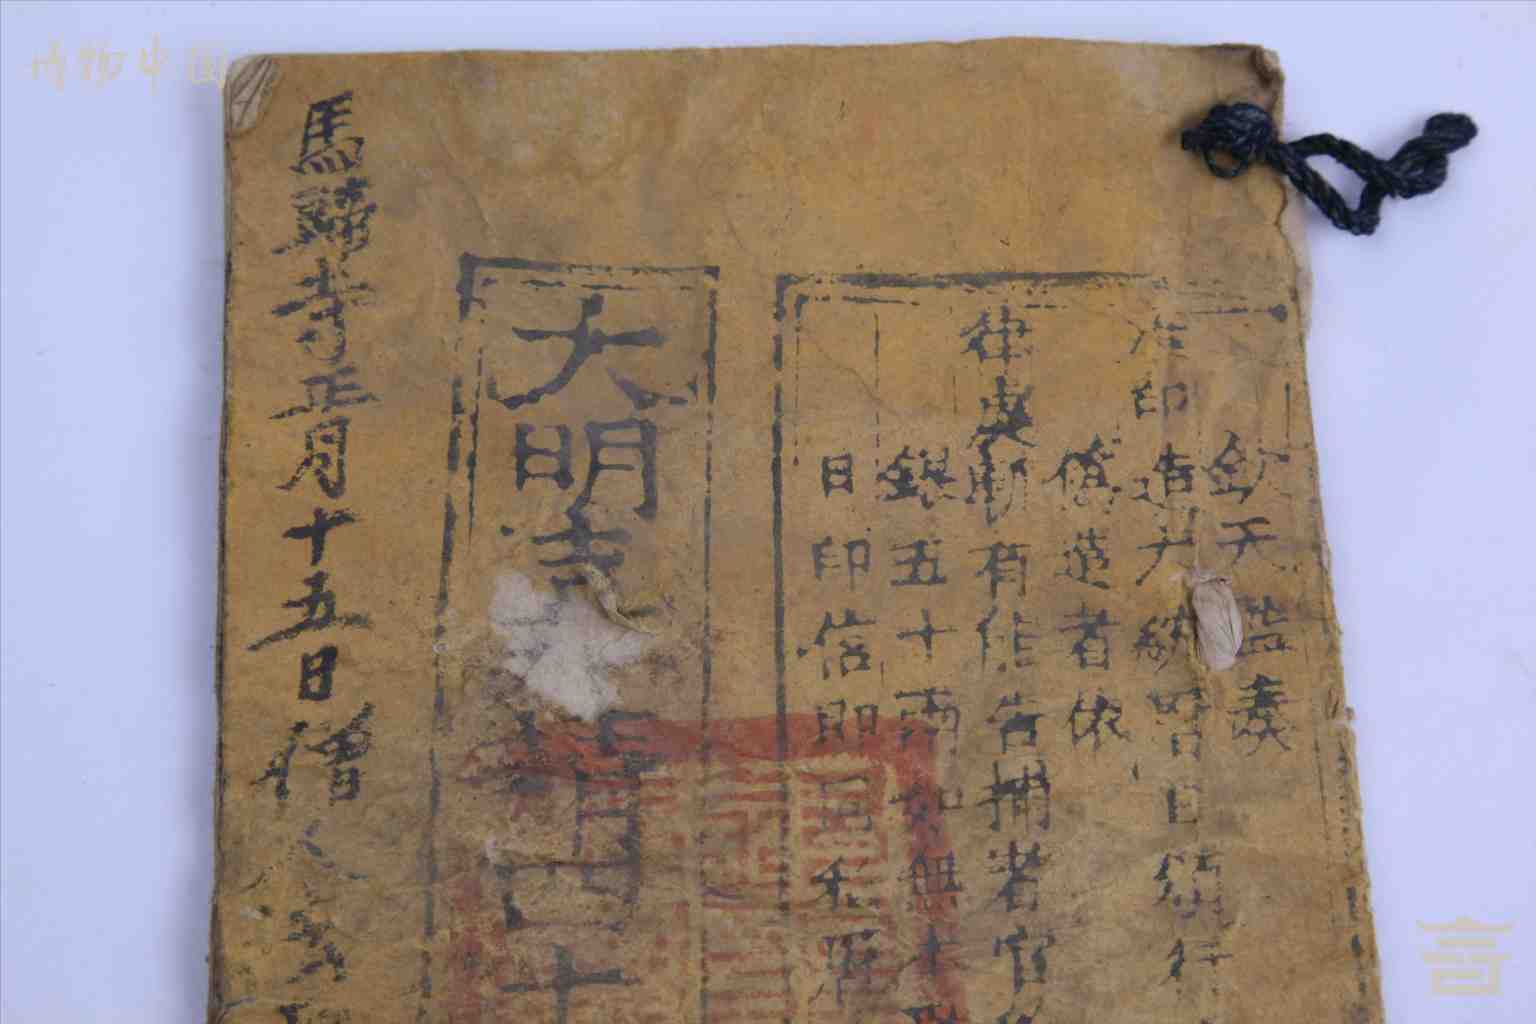 博物中国
欽天監奏
准印造大統曆日頒行
偽造者依
律處斬有能告捕者官
銀五十兩如無本
日印信即同私曆
大明嘉靖四十
馬蹄寺正月十五日僧人